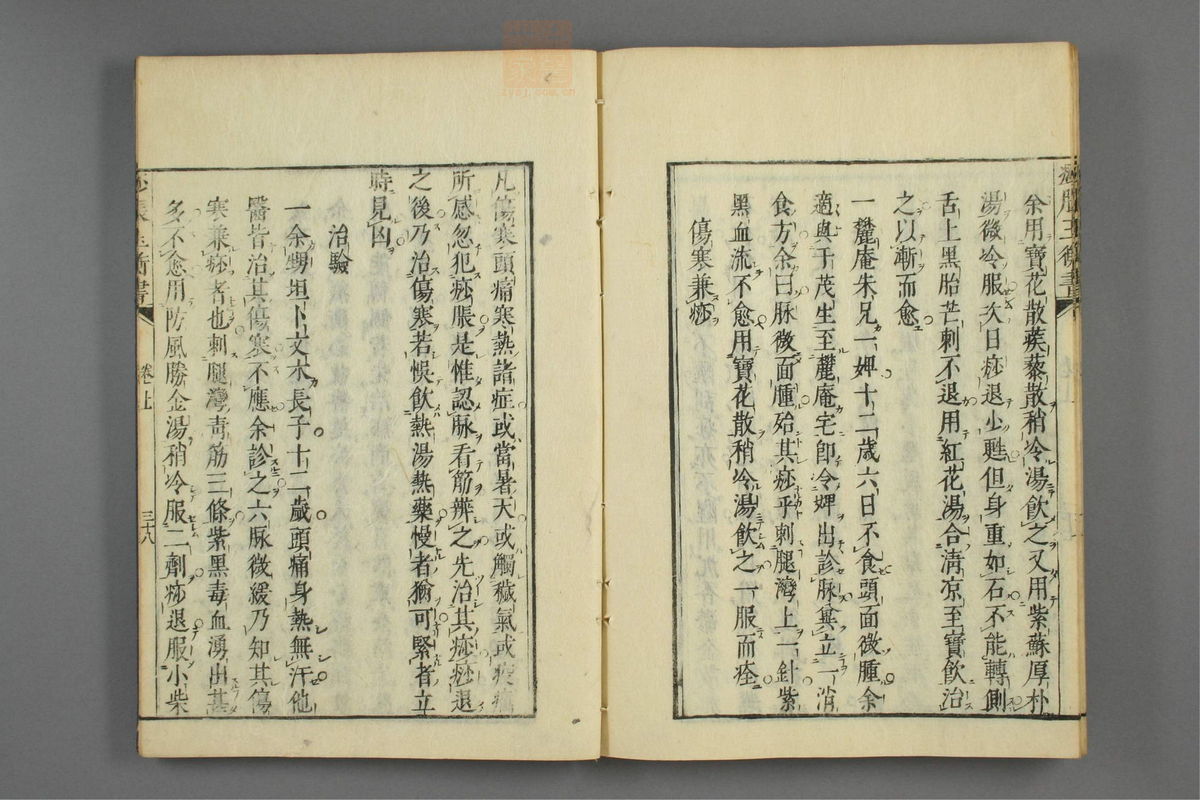 余用寶花散蒺藜散稍冷湯飲之又用紫蘇厚朴
湯微冷服次日痧退少甦但身重如石不能轉側
舌上黑胎芒刺不退用紅花湯合清凉至寶飲治
之以漸而愈
一麓庵朱兄一婢十二歳六日不食頭面微腫余
適與于茂生至麓庵宅卽令婢出診脉兼立一消
食方余曰脉微面腫殆其痧乎刺腿灣上一針紫
黑血流不愈用寶花散稍冷湯飲之一服而痊
傷寒兼痧
凡傷寒頭痛寒熱諸症或當暑天或觸穢氣或
所感忽犯痧脹是惟認脉看筋辨之先治其痧痧退
之後乃治傷寒若悞飲熱湯熱藥慢者猶可緊者立
時見凶
治驗
一余甥坦卜文木長子十二歳頭痛身熱無汗他
醫皆治其傷寒不應余診之六脉微緩乃知其傷
寒兼痧者也刺腿灣靑筋三條紫黑毒血湧出甚
多不愈用防風勝金湯稍冷服二劑痧退服小柴
痧脹玉衡書
卷上
三十八